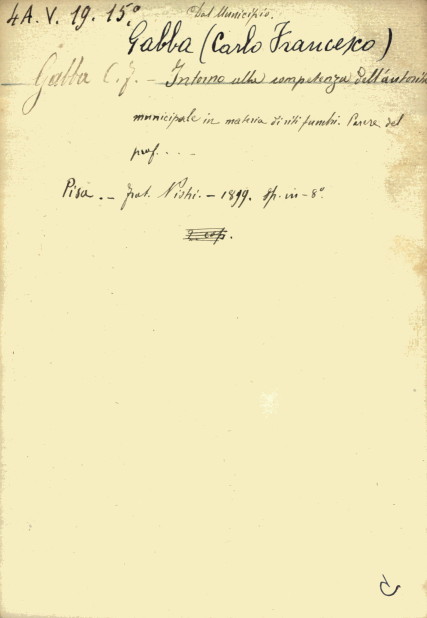 4A. V. 19. 15.° Dal Municipio.
Gabba (Carlo Francesco)
Gabba C. F. – Intorno alla competenza dell'autorità
municipale in materia di riti funebri. Parere del
prof. . . .
Pisa. – frat. Nistri. – 1899. op. in – 8°.
2 cop.